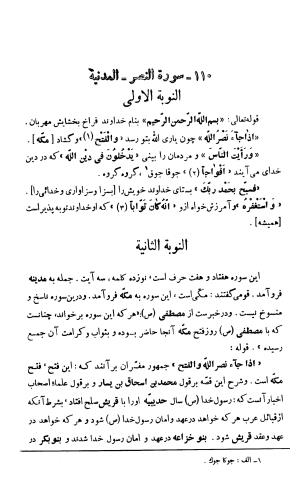 ۱۱۰ـ سورة النصر ـ المدنیة
النوبة الاولی
قوله تعالی: «بسم الله الرحمن الرحیم» بنام خداوند فراخ بخشایش مهربان.
«اذا جآء نصر الله» چون یاری الله بتو رسد «والفتح (۱)» وگشاد [مکه].
«ورأیت الناس» و مردمان را بینی «یدخلون فی دین الله» که در دین
خدای می‌آیند «أفواجاً (۲)» جوقا جوق ۱، گروه گروه.
«فسبّح بحمد ربّك» بستای خداوند خویش را [بسزا وسزاواری و خدائی را].
«و استغفره» وآمرزش خواه ازو «انّه کان توّاباً (۳)» که او خداوند توبه پذیر است
[همیشه].
النوبة الثانیة
این سوره هفتاد و هفت حرف است، نوزده کلمه، سه آیت. جمله به مدینه
فرو آمد. قومی گفتند: مکّی است، این سوره به مکّه فرو آمد. ودرین سوره ناسخ و
منسوخ نیست. ودر خبر است از مصطفی (ص): هر که این سوره بر خواند، چنانست
که با مصطفی (ص) روز فتح مکّه آنجا حاضر بوده و بثواب وکرامت آن جمع
رسیده». قوله:
«اذا جآء نصر الله والفتح» جمهور مفسّران بر آنند که: این فتح، فتح
مکّه است. و شرح این قصّه بر قول محمد بن اسحاق بن یسار و بر قول علماء اصحاب
اخبار آنست که: رسول خدا (ص) سال حدیبیه او را با قریش صلح افتاد، بشرط آنکه
از قبائل عرب هر که خواهد در عهد وامان رسول خدا (ص) شود و هر که خواهد در
عهد وعقد قریش شود. بنو خزاعه در عهد و امان رسول خدا شدند و بنو بکر در
۱ـ الف: جوکا جوک.